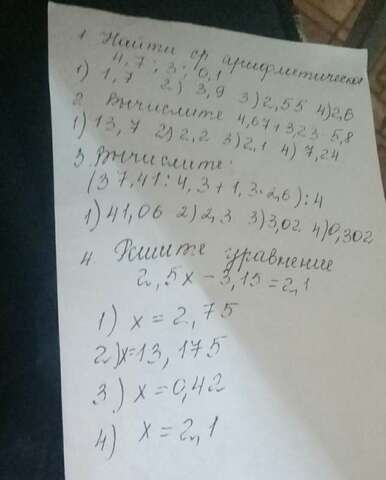 1. Найти ср. арифметическое
4,7; 3; 0,1
1) 1,7 2) 3,9 3) 2,55 4) 2,6
2. Вычислите 4,67+3,23-5,8
1) 13,7 2) 2,2 3) 2,1 4) 7,24
3. Вычислите:
(37,41:4,3+1,3·2,6):4
1) 41,06 2) 2,3 3) 3,02 4) 0,302
4. Решите уравнение
2,5x-3,15=2,1
1) x=2,75
2) x=13,175
3) x=0,42
4) x=2,1